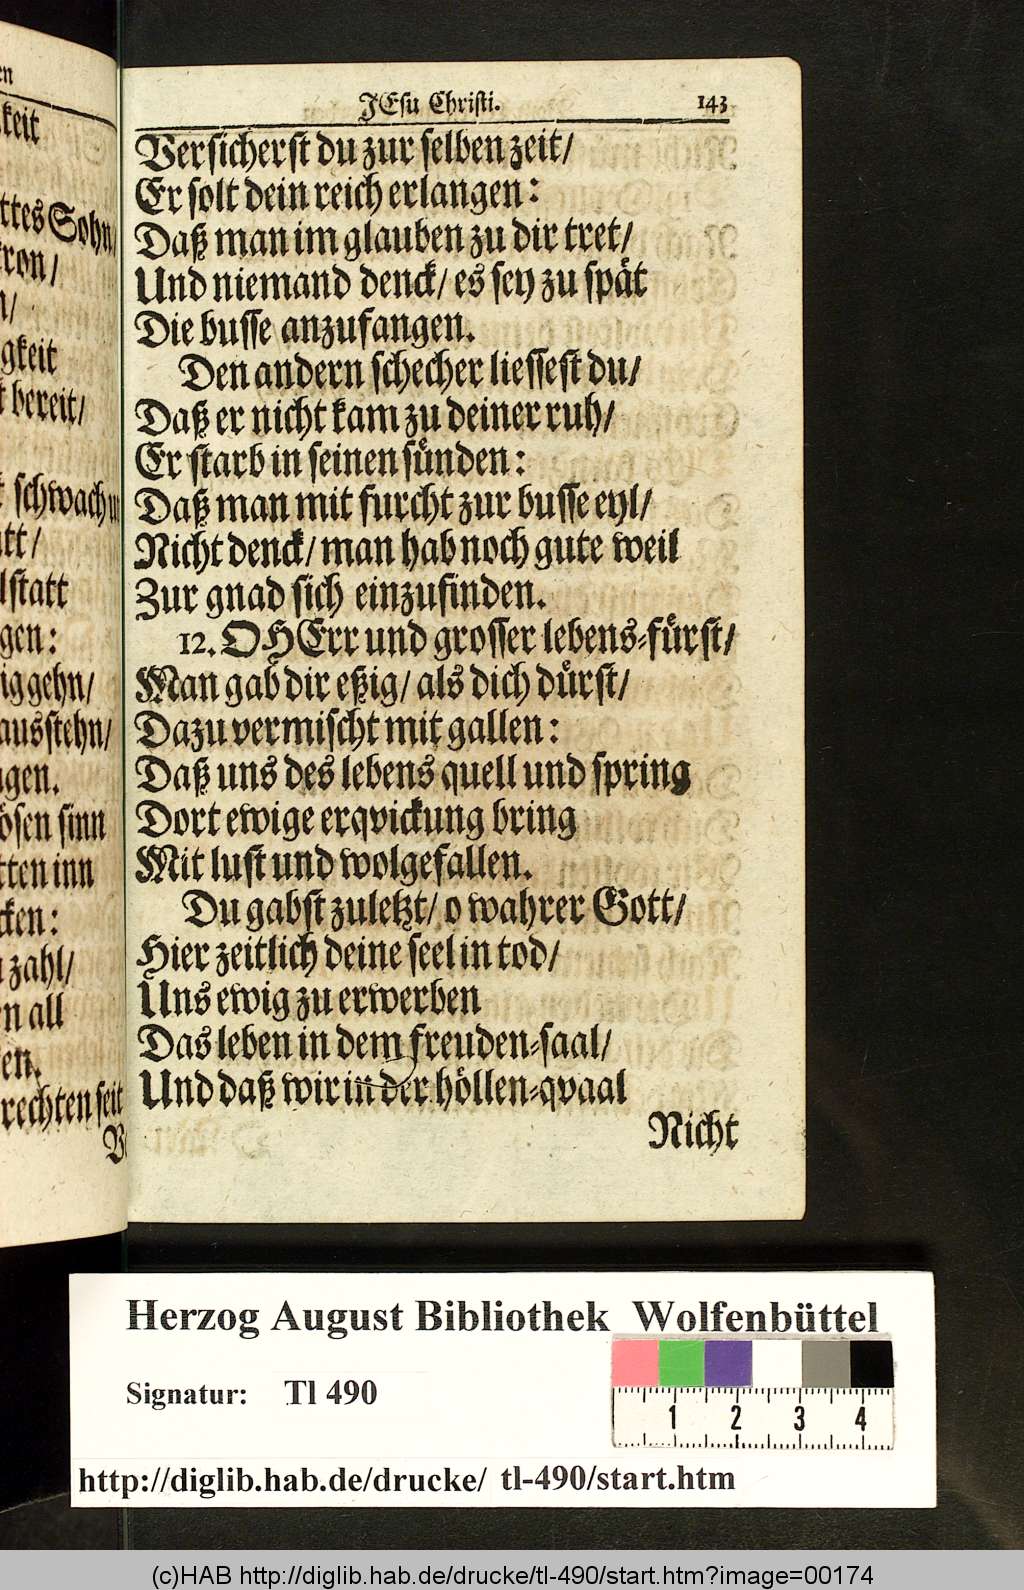 en
keit
ttes Sohn/
kron/
n/
gkeit
t bereit/
t schwach
tt/
lstatt
gen:
ig gehn/
ausstehn/
gen.
ösen sinn
tten inn
cken:
zahl/
n all
en.
rechten seit
JEsu Christi. 143
Versicherst du zur selben zeit/
Er solt dein reich erlangen:
Daß man im glauben zu dir tret/
Und niemand denck/ es sey zu spät
Die busse anzufangen.
Den andern schecher liessest du/
Daß er nicht kam zu deiner ruh/
Er starb in seinen sünden:
Daß man mit furcht zur busse eyl/
Nicht denck/ man hab noch gute weil
Zur gnad sich einzufinden.
12. O HErr und grosser lebens-fürst/
Man gab dir eßig/ als dich dürst/
Dazu vermischt mit gallen:
Daß uns des lebens quell und spring
Dort ewige erqvickung bring
Mit lust und wolgefallen.
Du gabst zuletzt/ o wahrer Gott/
Hier zeitlich deine seel in tod/
Uns ewig zu erwerben
Das leben in dem freuden-saal/
Und daß wir in der höllen-qvaal
Nicht
Herzog August Bibliothek Wolfenbüttel
Signatur: Tl 490
1 2 3 4
http://diglib.hab.de/drucke/ tl-490/start.htm
(c)HAB http://diglib.hab.de/drucke/tl-490/start.htm?image=00174